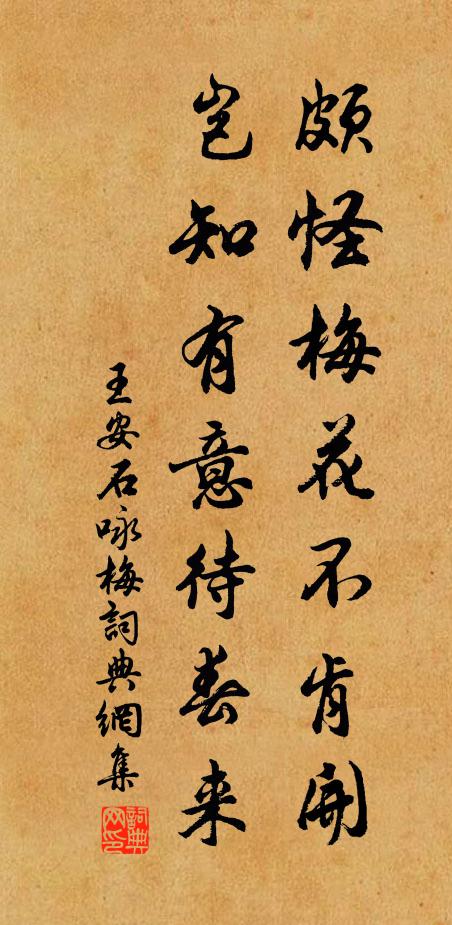 頗怪梅花不肯開
豈知有意待春来
王安石咏梅詞典網集
詞典網印